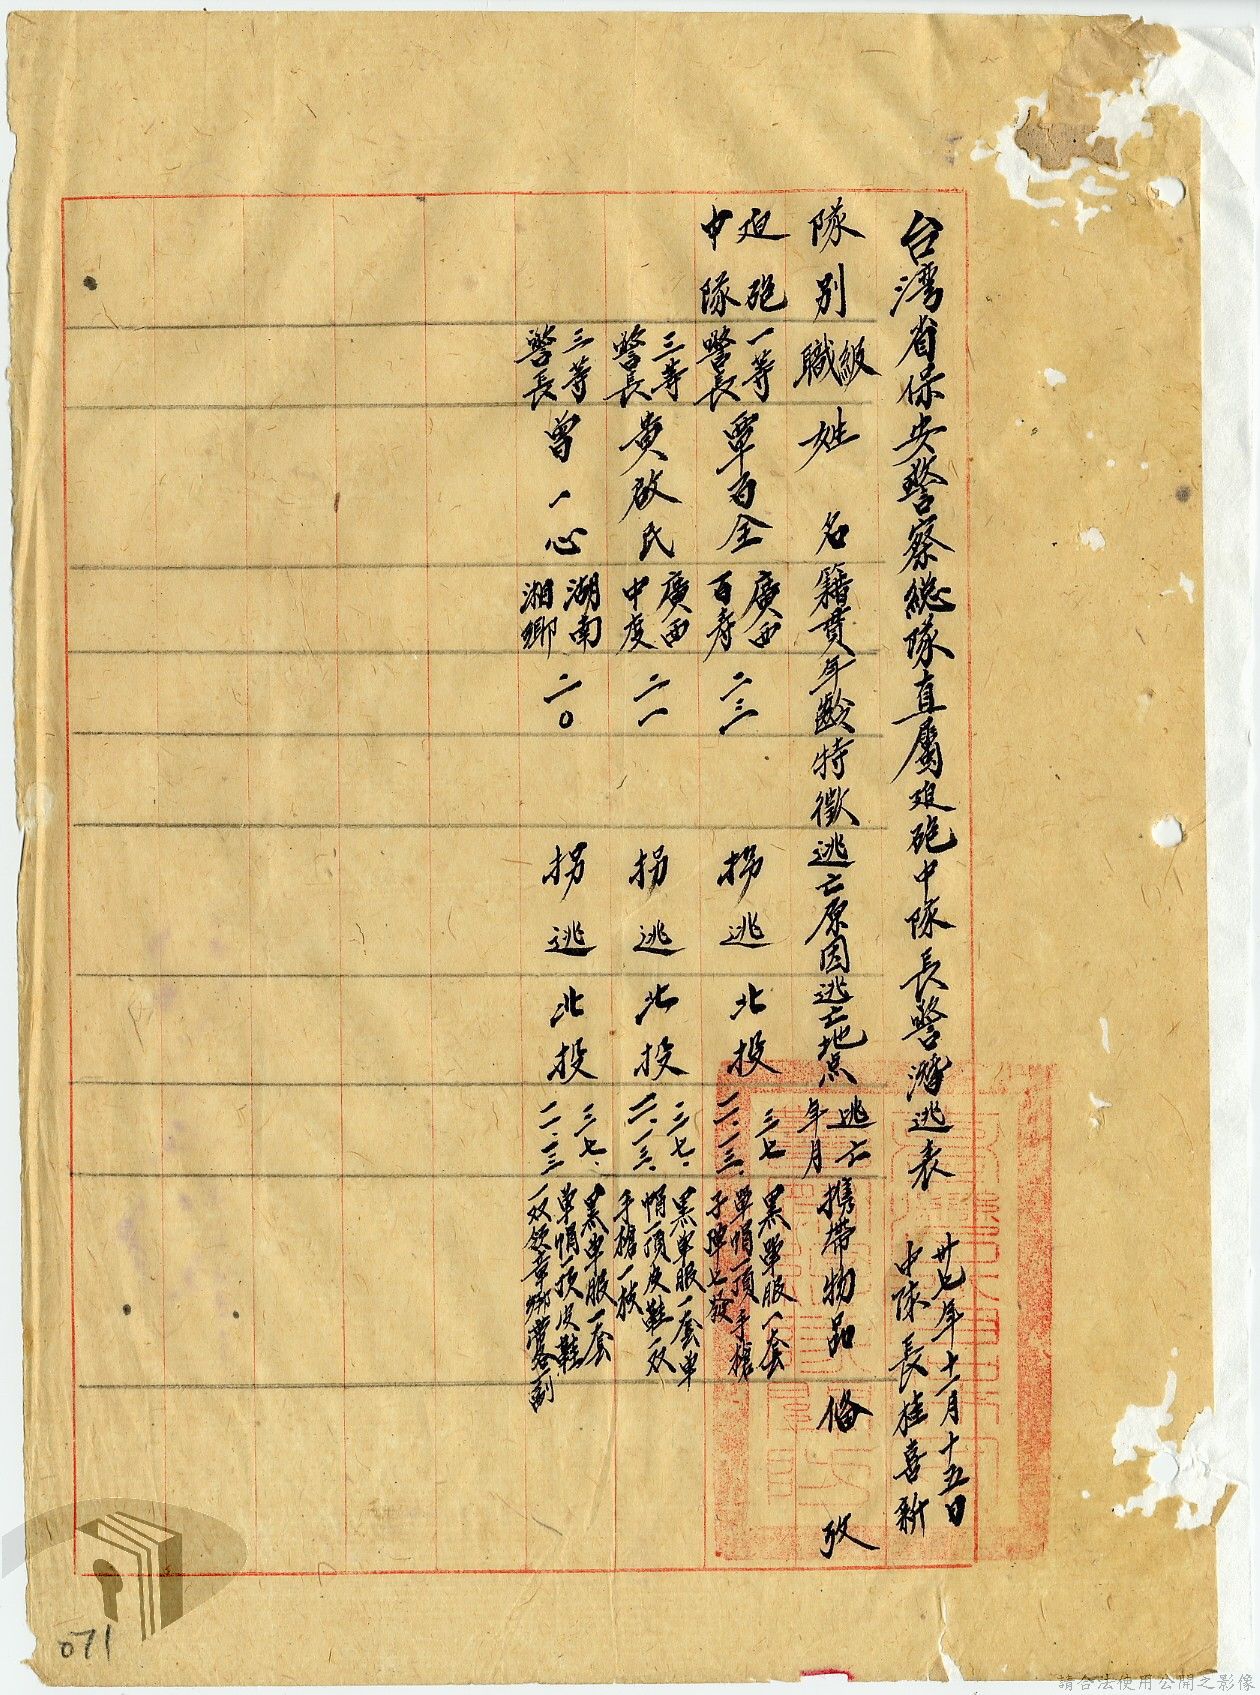 台湾省保安警察総隊直屬廹砲中隊長警潛逃表
卅七年十一月十五日
中隊長桂喜新
隊別
級職
姓名
籍貫
年齡
特徵
逃亡原因
逃亡地点
逃亡年月
攜帶物品
俻攷
廹砲中隊
一等警長
覃百全
廣西百寿
二三
拐逃
北投
三七
一一.一三.
黑單服一套
單帽一頂手槍
子彈七發
三等警長
黄啟民
廣西中度
二一
拐逃
北投
三七.
一一.一三.
黑單服一套單
帽一頂皮鞋一双
手槍一枝
三等警長
曾一心
湖南湘鄉
二〇
拐逃
北投
三七.
一一.一三
黑單服一套
單帽一頂皮鞋
一双領章綁帶各一副
071
請合法使用公開之影像